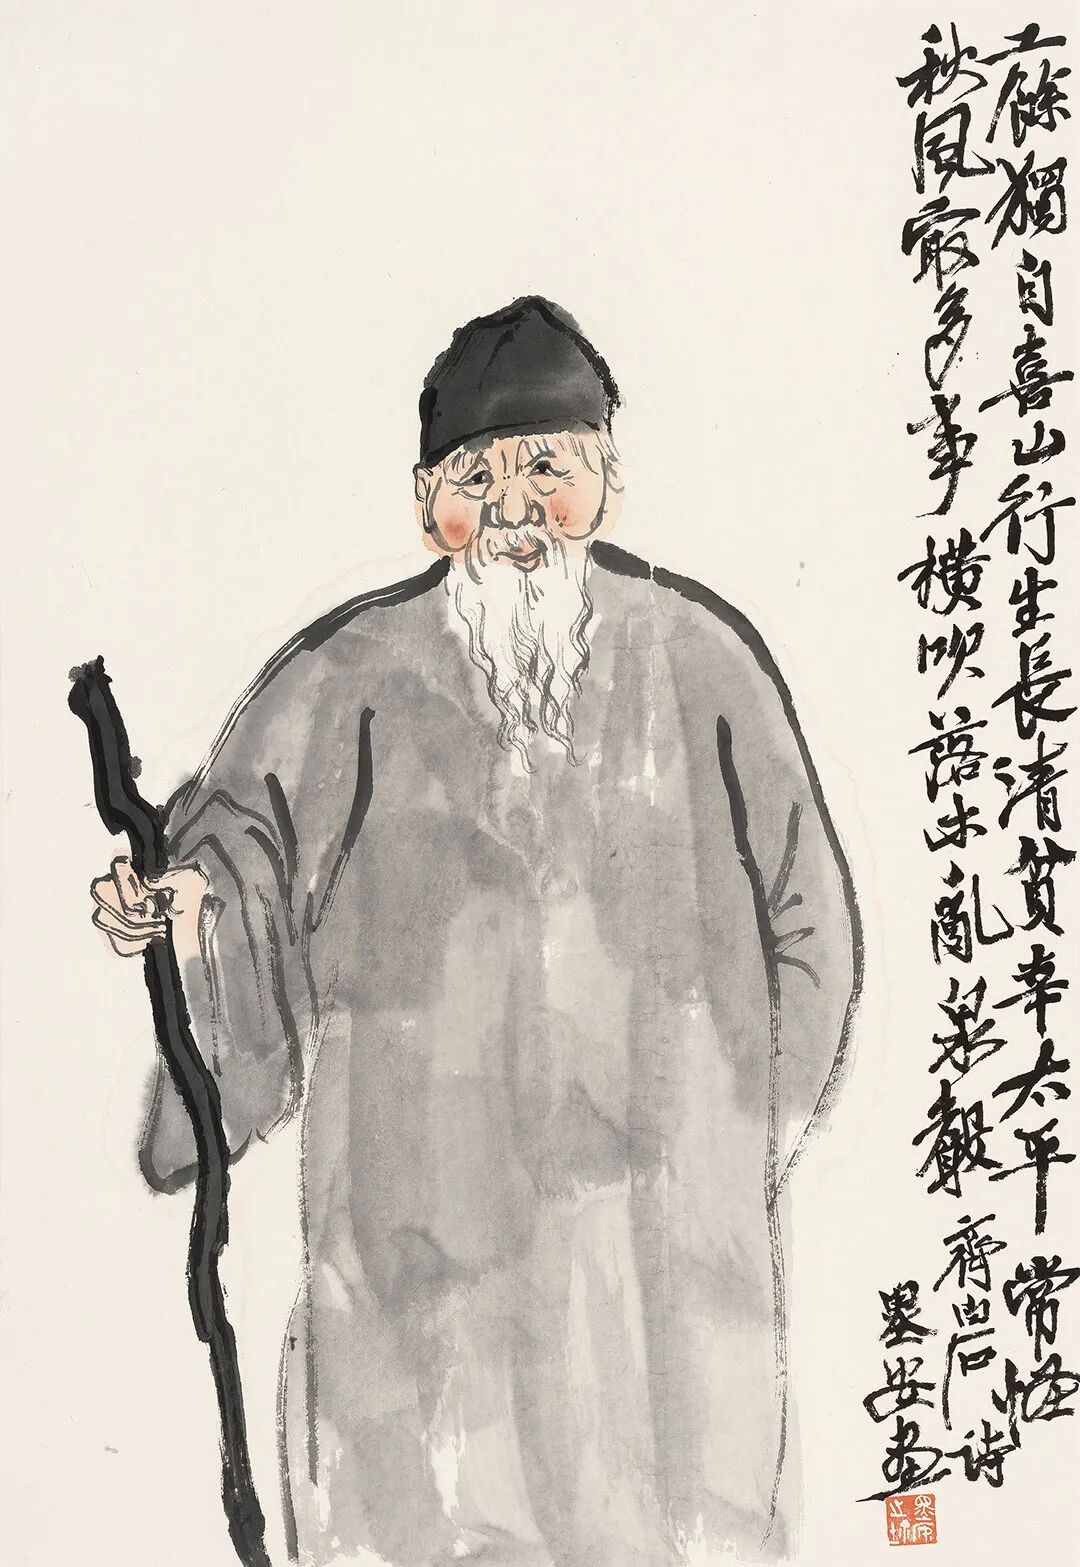 工餘獨自喜山行生長清貧幸太平常怪
秋風最多事橫吹落木亂泉聲
齊白石詩
墨安画